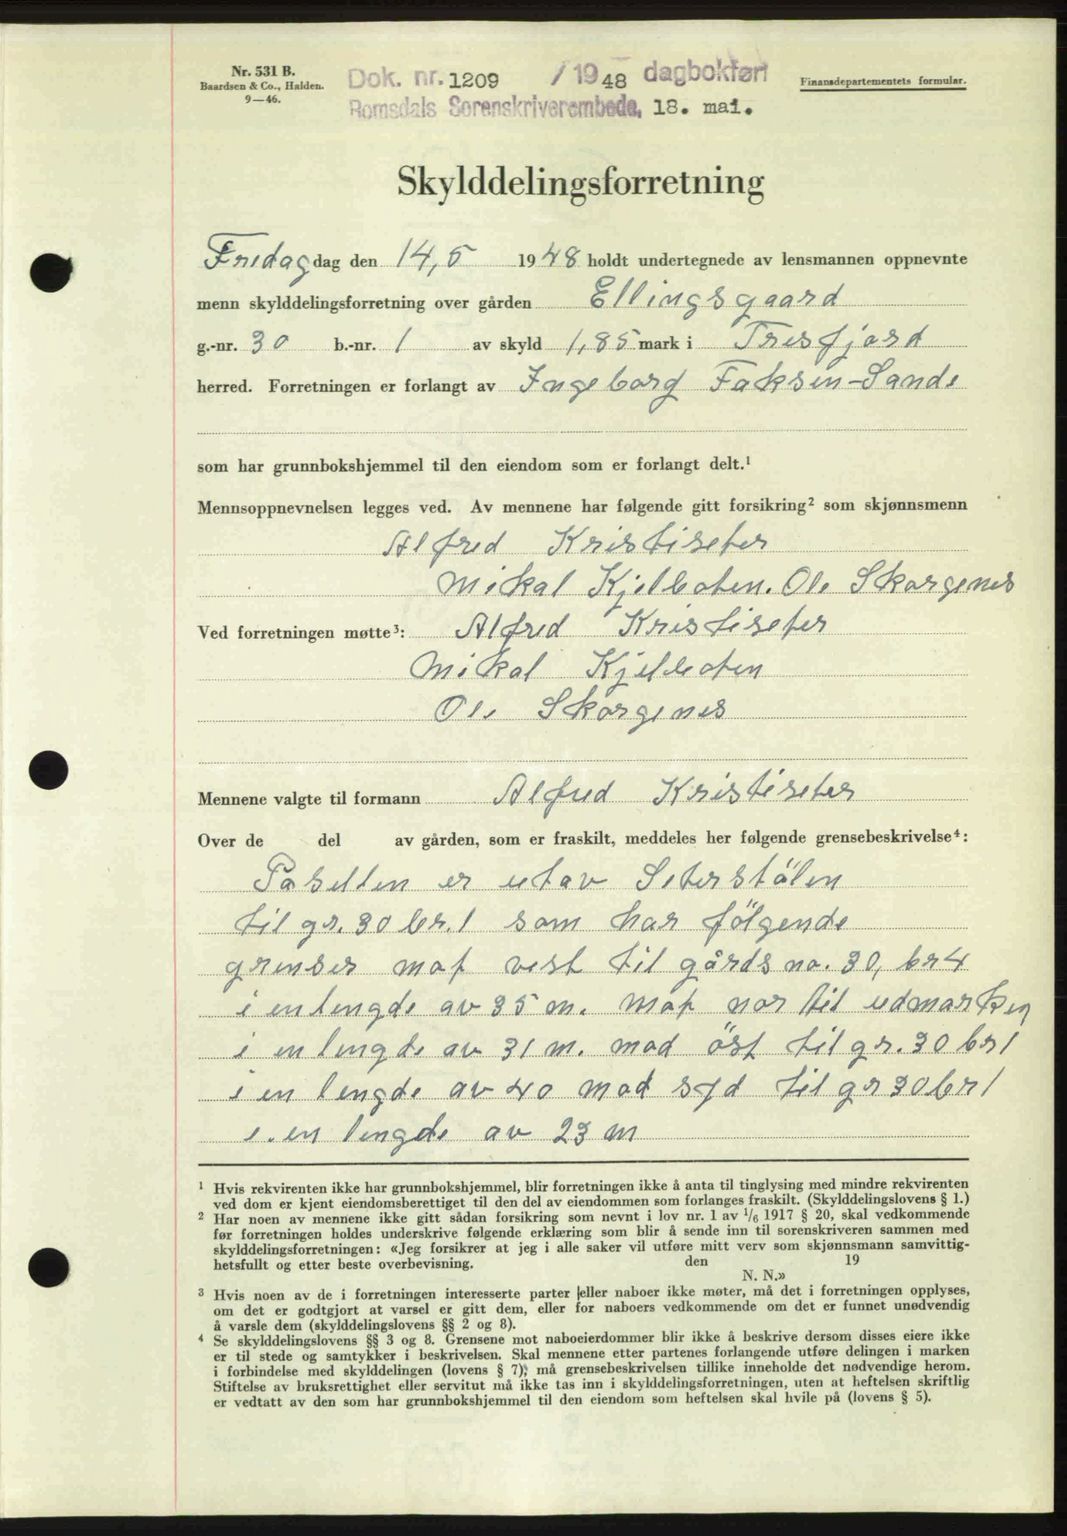 Nr. 531 B.
Baardsen & Co., Halden.
9—46.
Dok. nr. 1209 / 1948 dagbokført
Romsdals Sorenskriverembede, 18. mai.
Finansdepartementets formular.
Skylddelingsforretning
Fredag dag den 14,5 1948 holdt undertegnede av lensmannen oppnevnte
menn skylddelingsforretning over gården Ellingsgaard
g.-nr. 30 b.-nr. 1 av skyld 1,85 mark i Tresfjord
herred. Forretningen er forlangt av Ingeborg Faksen-Sande
som har grunnbokshjemmel til den eiendom som er forlangt delt.¹
Mennsoppnevnelsen legges ved. Av mennene har følgende gitt forsikring² som skjønnsmenn
Alfred Kristiseter
Mikal Kjelboten. Ole Skorgenes
Ved forretningen møtte³: Alfred Kristiseter
Mikal Kjelboten
Ole Skorgenes
Mennene valgte til formann Alfred Kristiseter
Over de del av gården, som er fraskilt, meddeles her følgende grensebeskrivelse⁴:
Parsellen er utav Seterstölen
til gr. 30 br. 1 som har fölgende
grenser mot vest til gårds no. 30, br 4
i en lengde av 35 m. mot nor til udmarken
i en lengde av 31 m. mod öst til gr. 30 br 1
i en lengde av 40 mod syd til gr 30 br 1
i. en lengde av 23 m
¹ Hvis rekvirenten ikke har grunnbokshjemmel, blir forretningen ikke å anta til tinglysing med mindre rekvirenten
ved dom er kjent eiendomsberettiget til den del av eiendommen som forlanges fraskilt. (Skylddelingslovens § 1.)
² Har noen av mennene ikke gitt sådan forsikring som nevnt i lov nr. 1 av 1/6 1917 § 20, skal vedkommende
før forretningen holdes underskrive følgende erklæring som blir å sende inn til sorenskriveren sammen med
skylddelingsforretningen: «Jeg forsikrer at jeg i alle saker vil utføre mitt verv som skjønnsmann samvittig-
hetsfullt og etter beste overbevisning. den 19
N. N.»
³ Hvis noen av de i forretningen interesserte parter eller naboer ikke møter, må det i forretningen opplyses,
om det er godtgjort at varsel er gitt dem, eller for naboers vedkommende om det er funnet unødvendig
å varsle dem (skylddelingslovens §§ 2 og 8).
⁴ Se skylddelingslovens §§ 3 og 8. Grensene mot naboeierdommer blir ikke å beskrive dersom disses eiere ikke
er til stede og samtykker i beskrivelsen. Skal mennene etter partenes forlangende utføre delingen i marken
i forbindelse med skylddelingen (lovens § 7); må grensebeskrivelsen tillike inneholde det nødvendige herom.
Stiftelse av bruksrettighet eller servitut må ikke tas inn i skylddelingsforretningen, uten at heftelsen skriftlig
er vedtatt av den som har grunnbokshjemmel til den eiendom som heftelsen skal hvile på (lovens § 5).